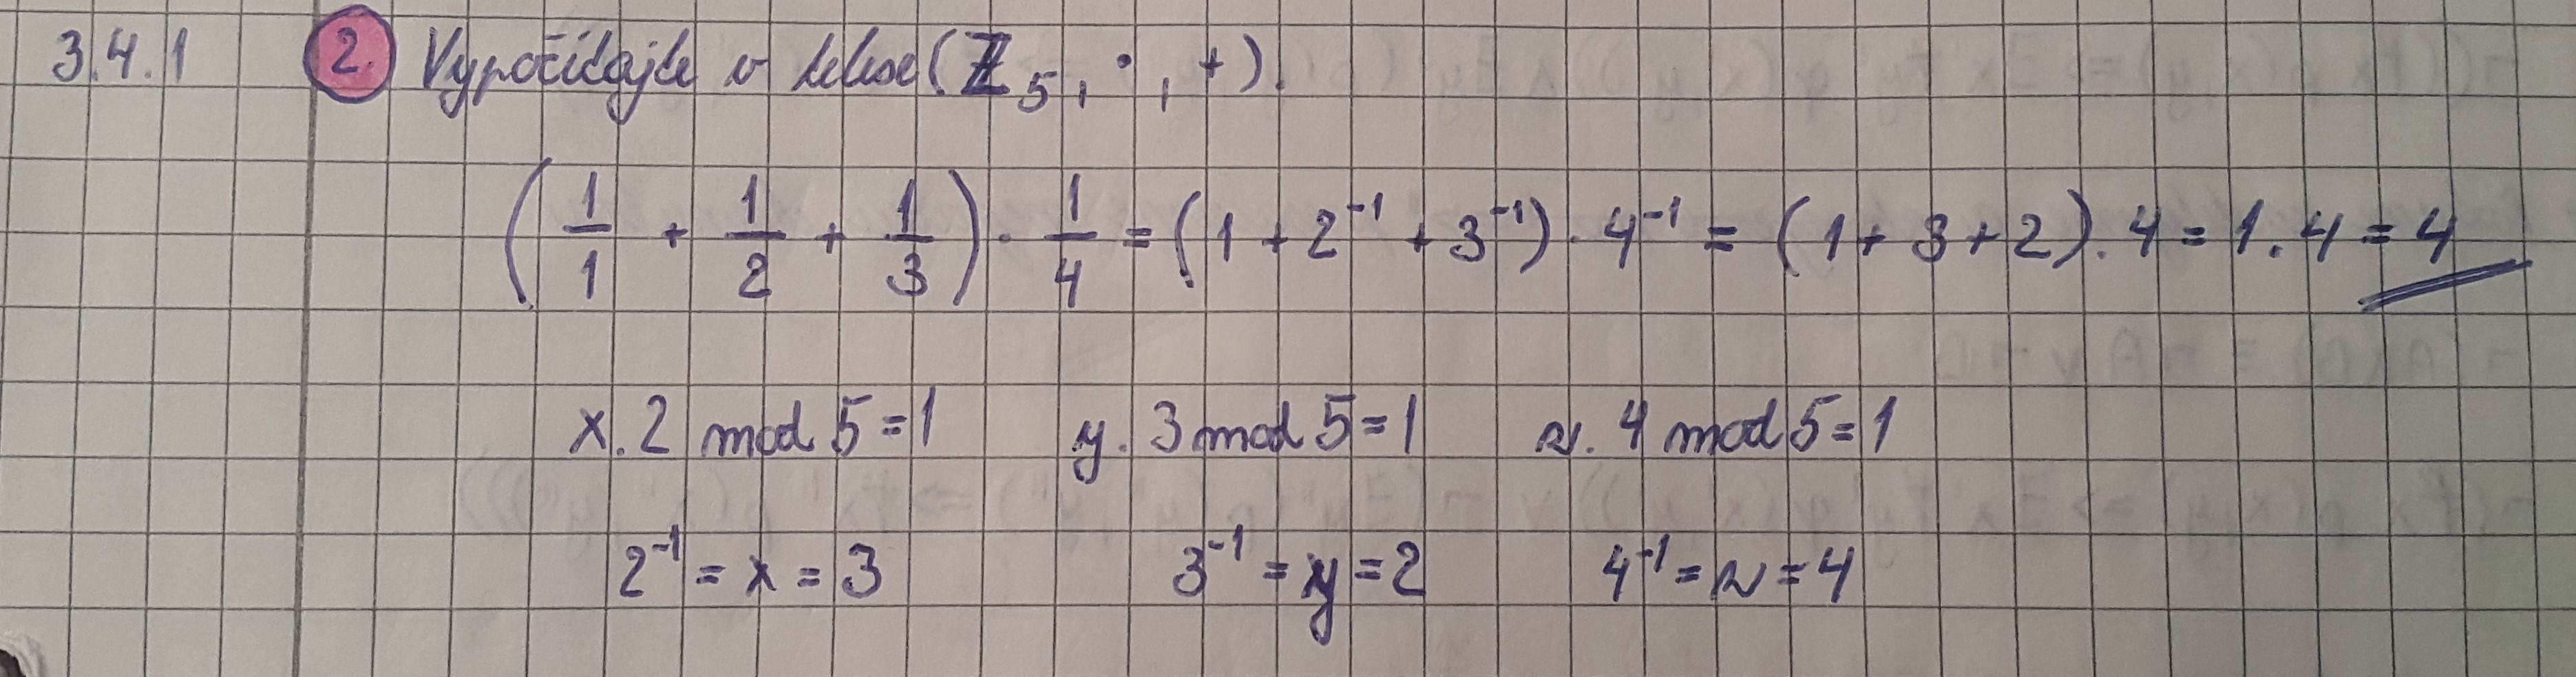 3.4.1 2. Vypočítajte v telese (ℤ₅, ·, +).
(1/1 + 1/2 + 1/3) · 1/4 = (1 + 2⁻¹ + 3⁻¹) · 4⁻¹ = (1 + 3 + 2) . 4 = 1 . 4 = 4
x . 2 mod 5 = 1 y . 3 mod 5 = 1 z . 4 mod 5 = 1
2⁻¹ = x = 3 3⁻¹ = y = 2 4⁻¹ = z = 4